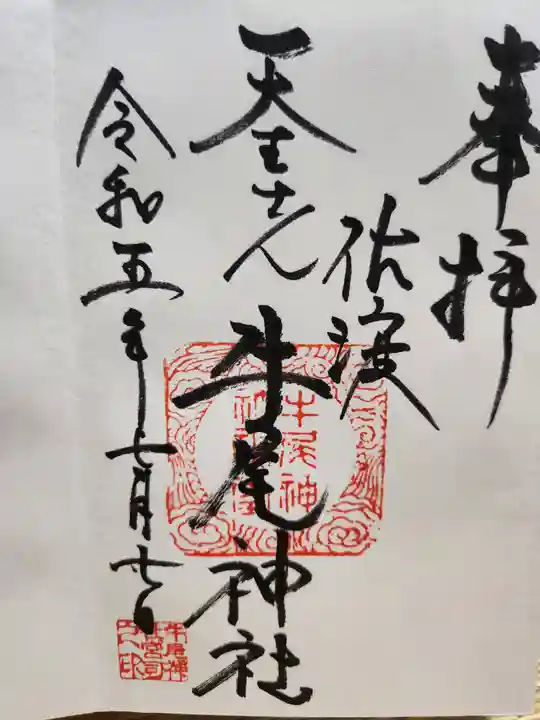 奉拝
佐渡
天王さん
牛尾神社
令和五年七月廿日
牛尾神
社宮司
之印